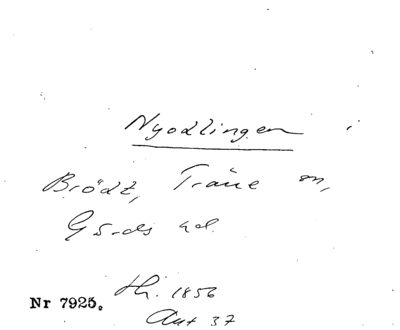 Nyodlingen i
Brödt, Träne sn,
Gärds hd.
Nr 7925. Hh. 1856
Ant 37